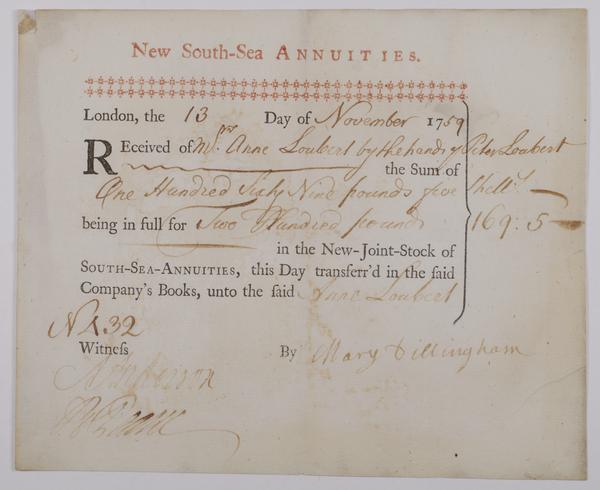 New South-Sea ANNUITIES.
London, the 13 Day of November 1759
REceived of Mrs. Anne Loubert by the hands of Peter Loubert
the Sum of
One Hundred Sixty Nine pounds five Shells
being in full for Two Hundred pounds 169: 5
in the New-Joint-Stock of
SOUTH-SEA-ANNUITIES, this Day transferr'd in the said
Company's Books, unto the said Anne Loubert
132
Witness By Mary Dillingham